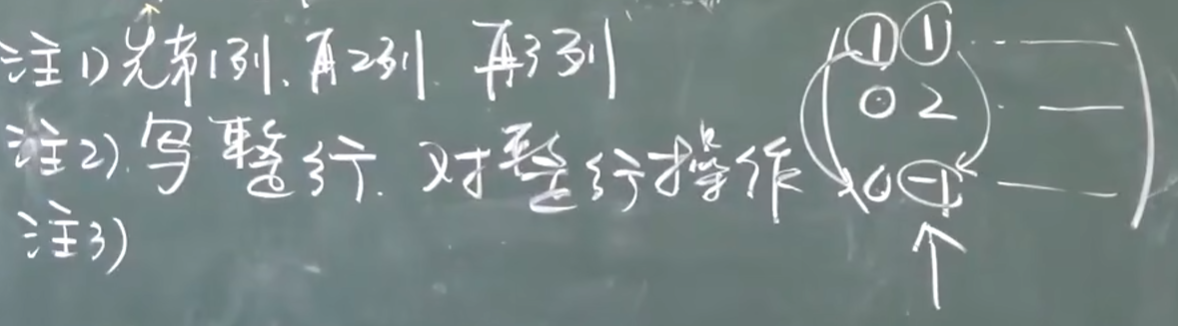 注1) 先第1列、再2列. 再3列
注2). 写整行. 对整行操作
注3)
1 1 ...
0 2 ...
0 -1